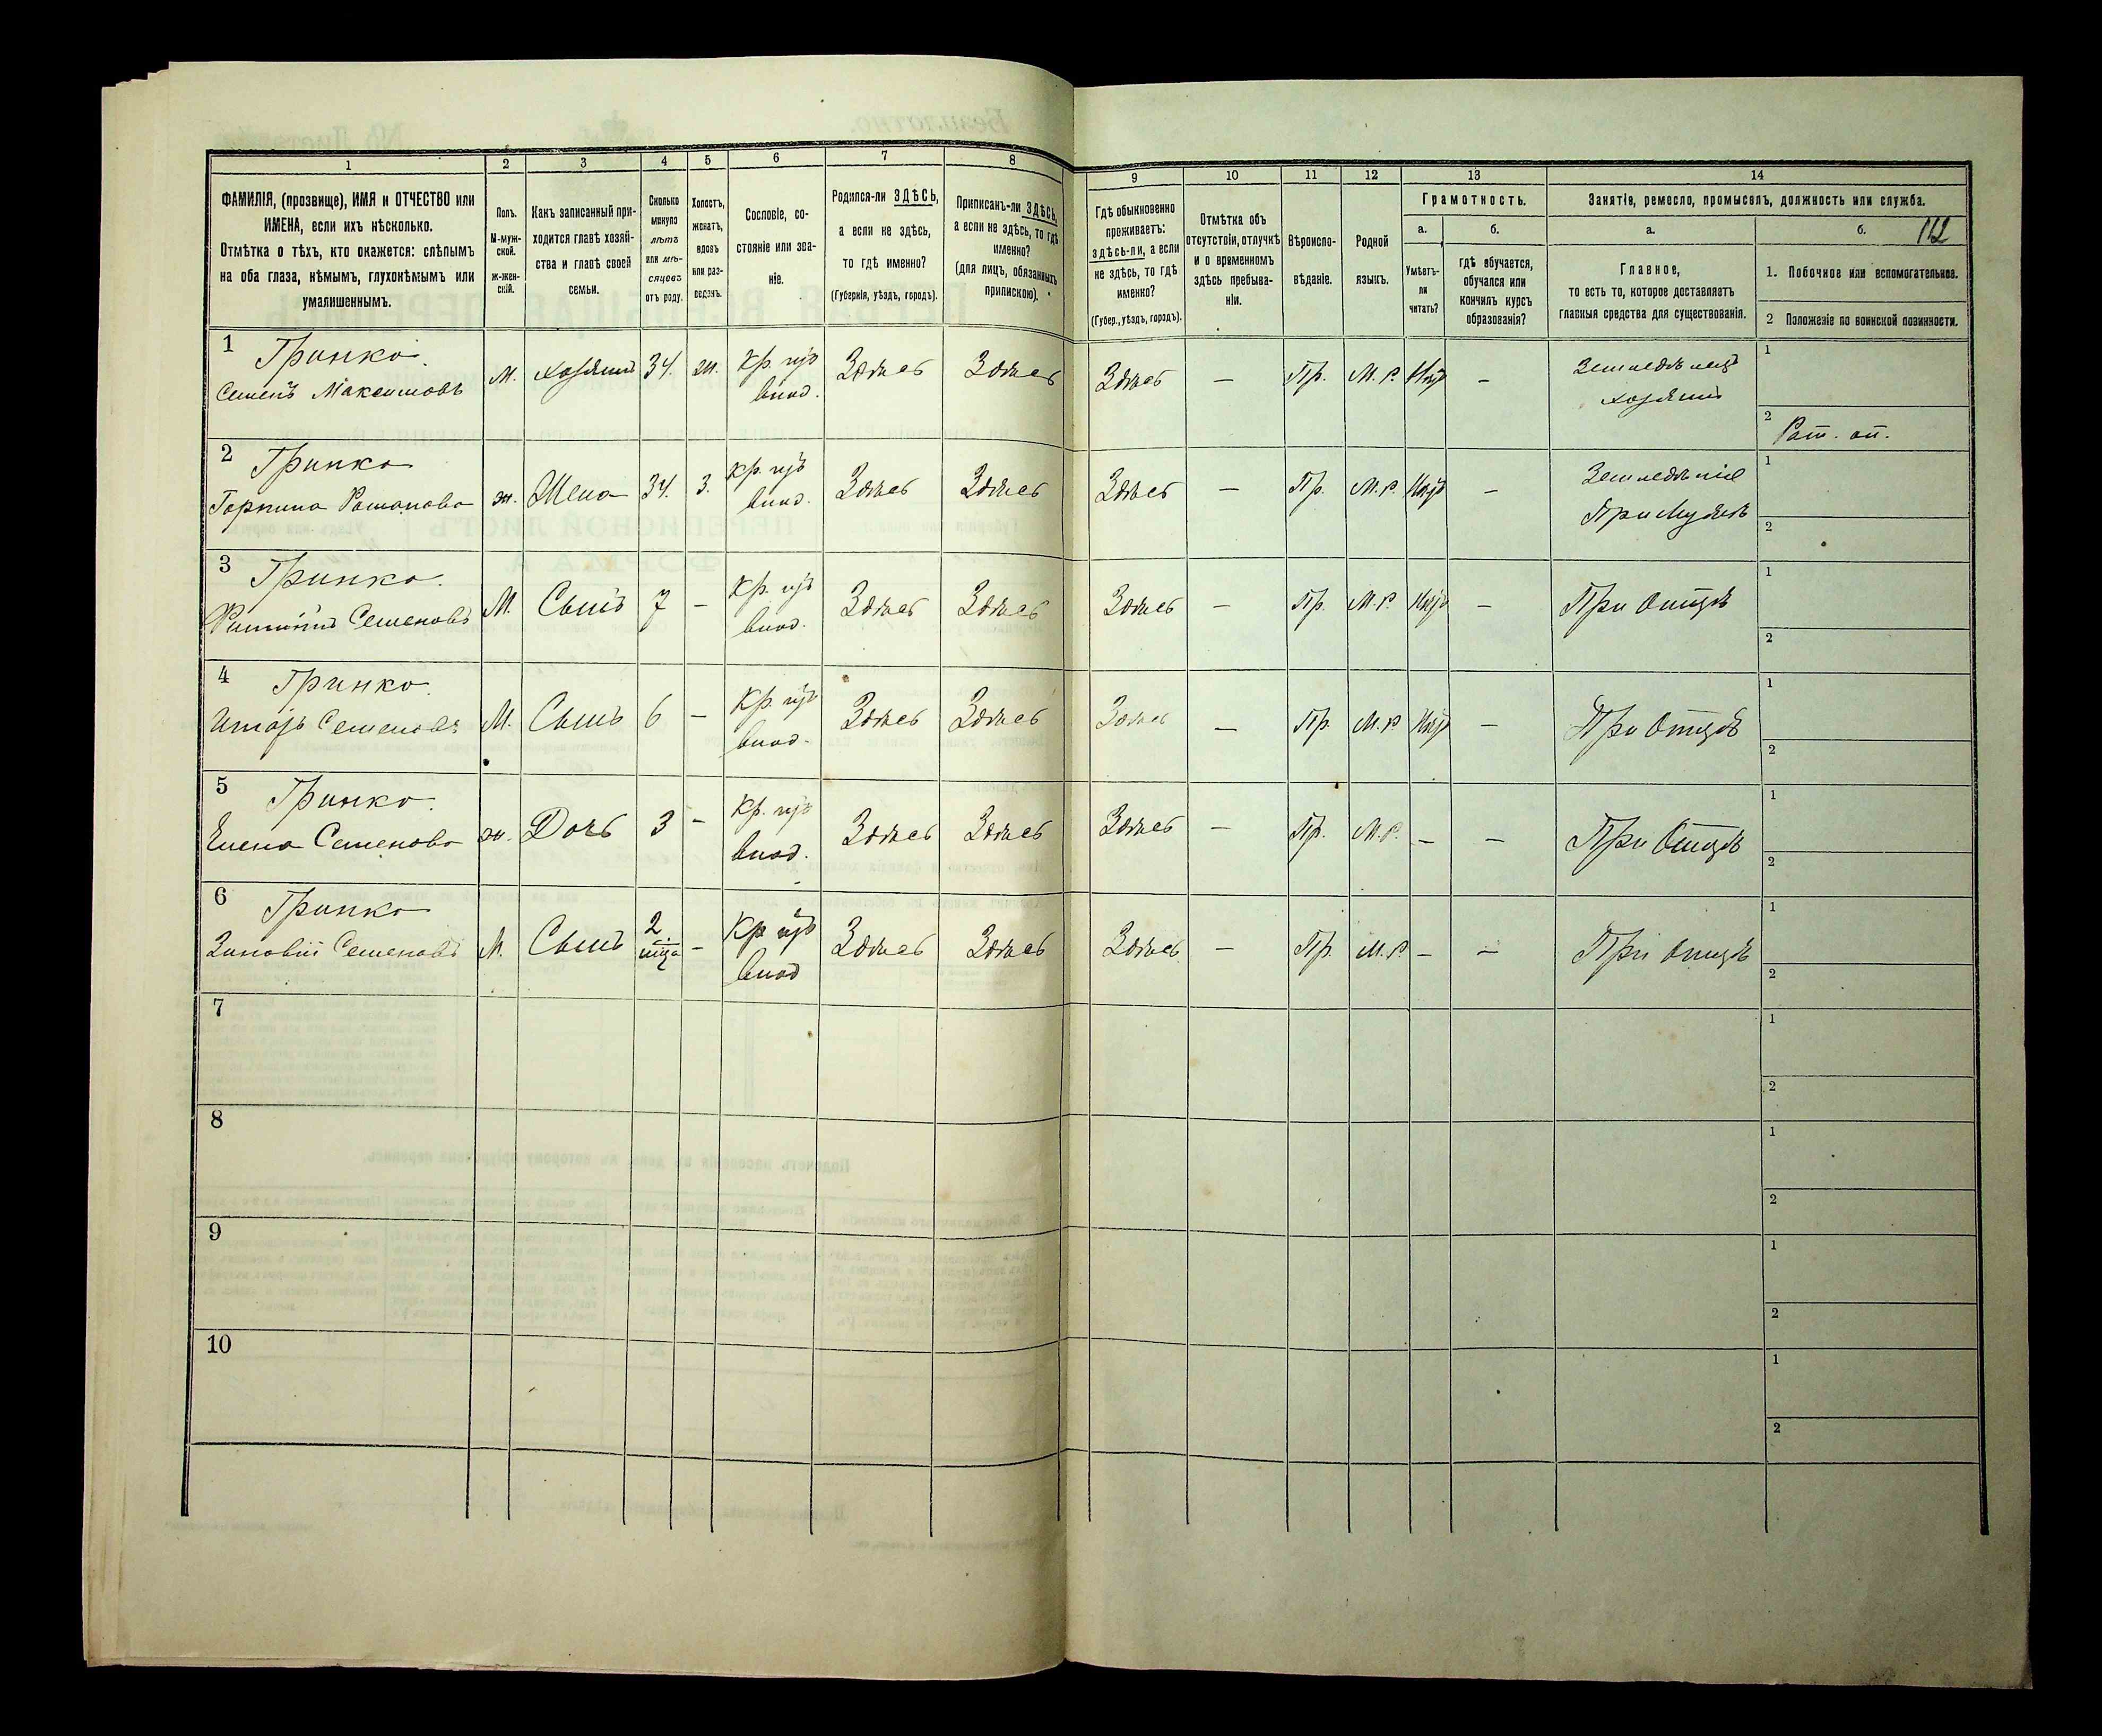 1 2 3 4 5 6 7 8 9 10 11 12 13 14
ФАМИЛІЯ, (прозвище), ИМЯ и ОТЧЕСТВО или
ИМЕНА, если ихъ нѣсколько.
Отмѣтка о тѣхъ, кто окажется: слѣпымъ
на оба глаза, нѣмымъ, глухонѣмымъ или
умалишеннымъ.
Полъ.
М-муж-
ской.
ж-жен-
скій.
Какъ записанный при-
ходится главѣ хозяй-
ства и главѣ своей
семьи.
Сколько
минуло
лѣтъ
или мѣ-
сяцевъ
отъ роду.
Холостъ,
женатъ,
вдовъ
или раз-
веденъ.
Сословіе, со-
стояніе или зва-
ніе.
Родился-ли ЗДѢСЬ,
а если не здѣсь,
то гдѣ именно?
(Губернія, уѣздъ, городъ).
Приписанъ-ли ЗДѢСЬ,
а если не здѣсь, то гдѣ
именно?
(для лицъ, обязанныхъ
припискою).
Гдѣ обыкновенно
проживаетъ:
здѣсь-ли, а если
не здѣсь, то гдѣ
именно?
(Губер., уѣздъ, городъ).
Отмѣтка объ
отсутствіи, отлучкѣ
и о временномъ
здѣсь пребыва-
ніи.
Вѣроиспо-
вѣданіе.
Родной
языкъ.
Грамотность.
а.
Умѣетъ-
ли
читать?
б.
гдѣ обучается,
обучался или
кончилъ курсъ
образованія?
Занятіе, ремесло, промыселъ, должность или служба.
а.
Главное,
то есть то, которое доставляетъ
главныя средства для существованія.
б. 112
1. Побочное или вспомогательное.
2 Положеніе по воинской повинности.
1 Гринко
Семенъ Максимовъ М. хозяинъ 34. ж. Кр. изъ
влад. Здѣсь Здѣсь Здѣсь — Пр. М. р. Нѣтъ — Земледѣлецъ
хозяинъ
1
2 Рат. оп.
2 Гринко
Горпина Романова ж. Жена 34. З. Кр. изъ
влад. Здѣсь Здѣсь Здѣсь — Пр. М. р. Нѣтъ — Земледѣліе
При Мужѣ
1
2
3 Гринко.
Семеновъ М. Сынъ 7 — Кр. изъ
влад. Здѣсь Здѣсь Здѣсь — Пр. М. р. Нѣтъ — При Отцѣ
1
2
4 Гринко.
Семеновъ М. Сынъ 6 — Кр. изъ
влад. Здѣсь Здѣсь Здѣсь — Пр. М. р. Нѣтъ — При Отцѣ
1
2
5 Гринко.
Елена Семенова ж. Дочь 3 — Кр. изъ
влад. Здѣсь Здѣсь Здѣсь — Пр. М. р. — — При Отцѣ
1
2
6 Гринко
Зиновій Семеновъ М. Сынъ 2
мѣся — Кр изъ
влад Здѣсь Здѣсь Здѣсь — Пр. М. р — — При Отцѣ
1
2
7
1
2
8
1
2
9
1
2
10
1
2